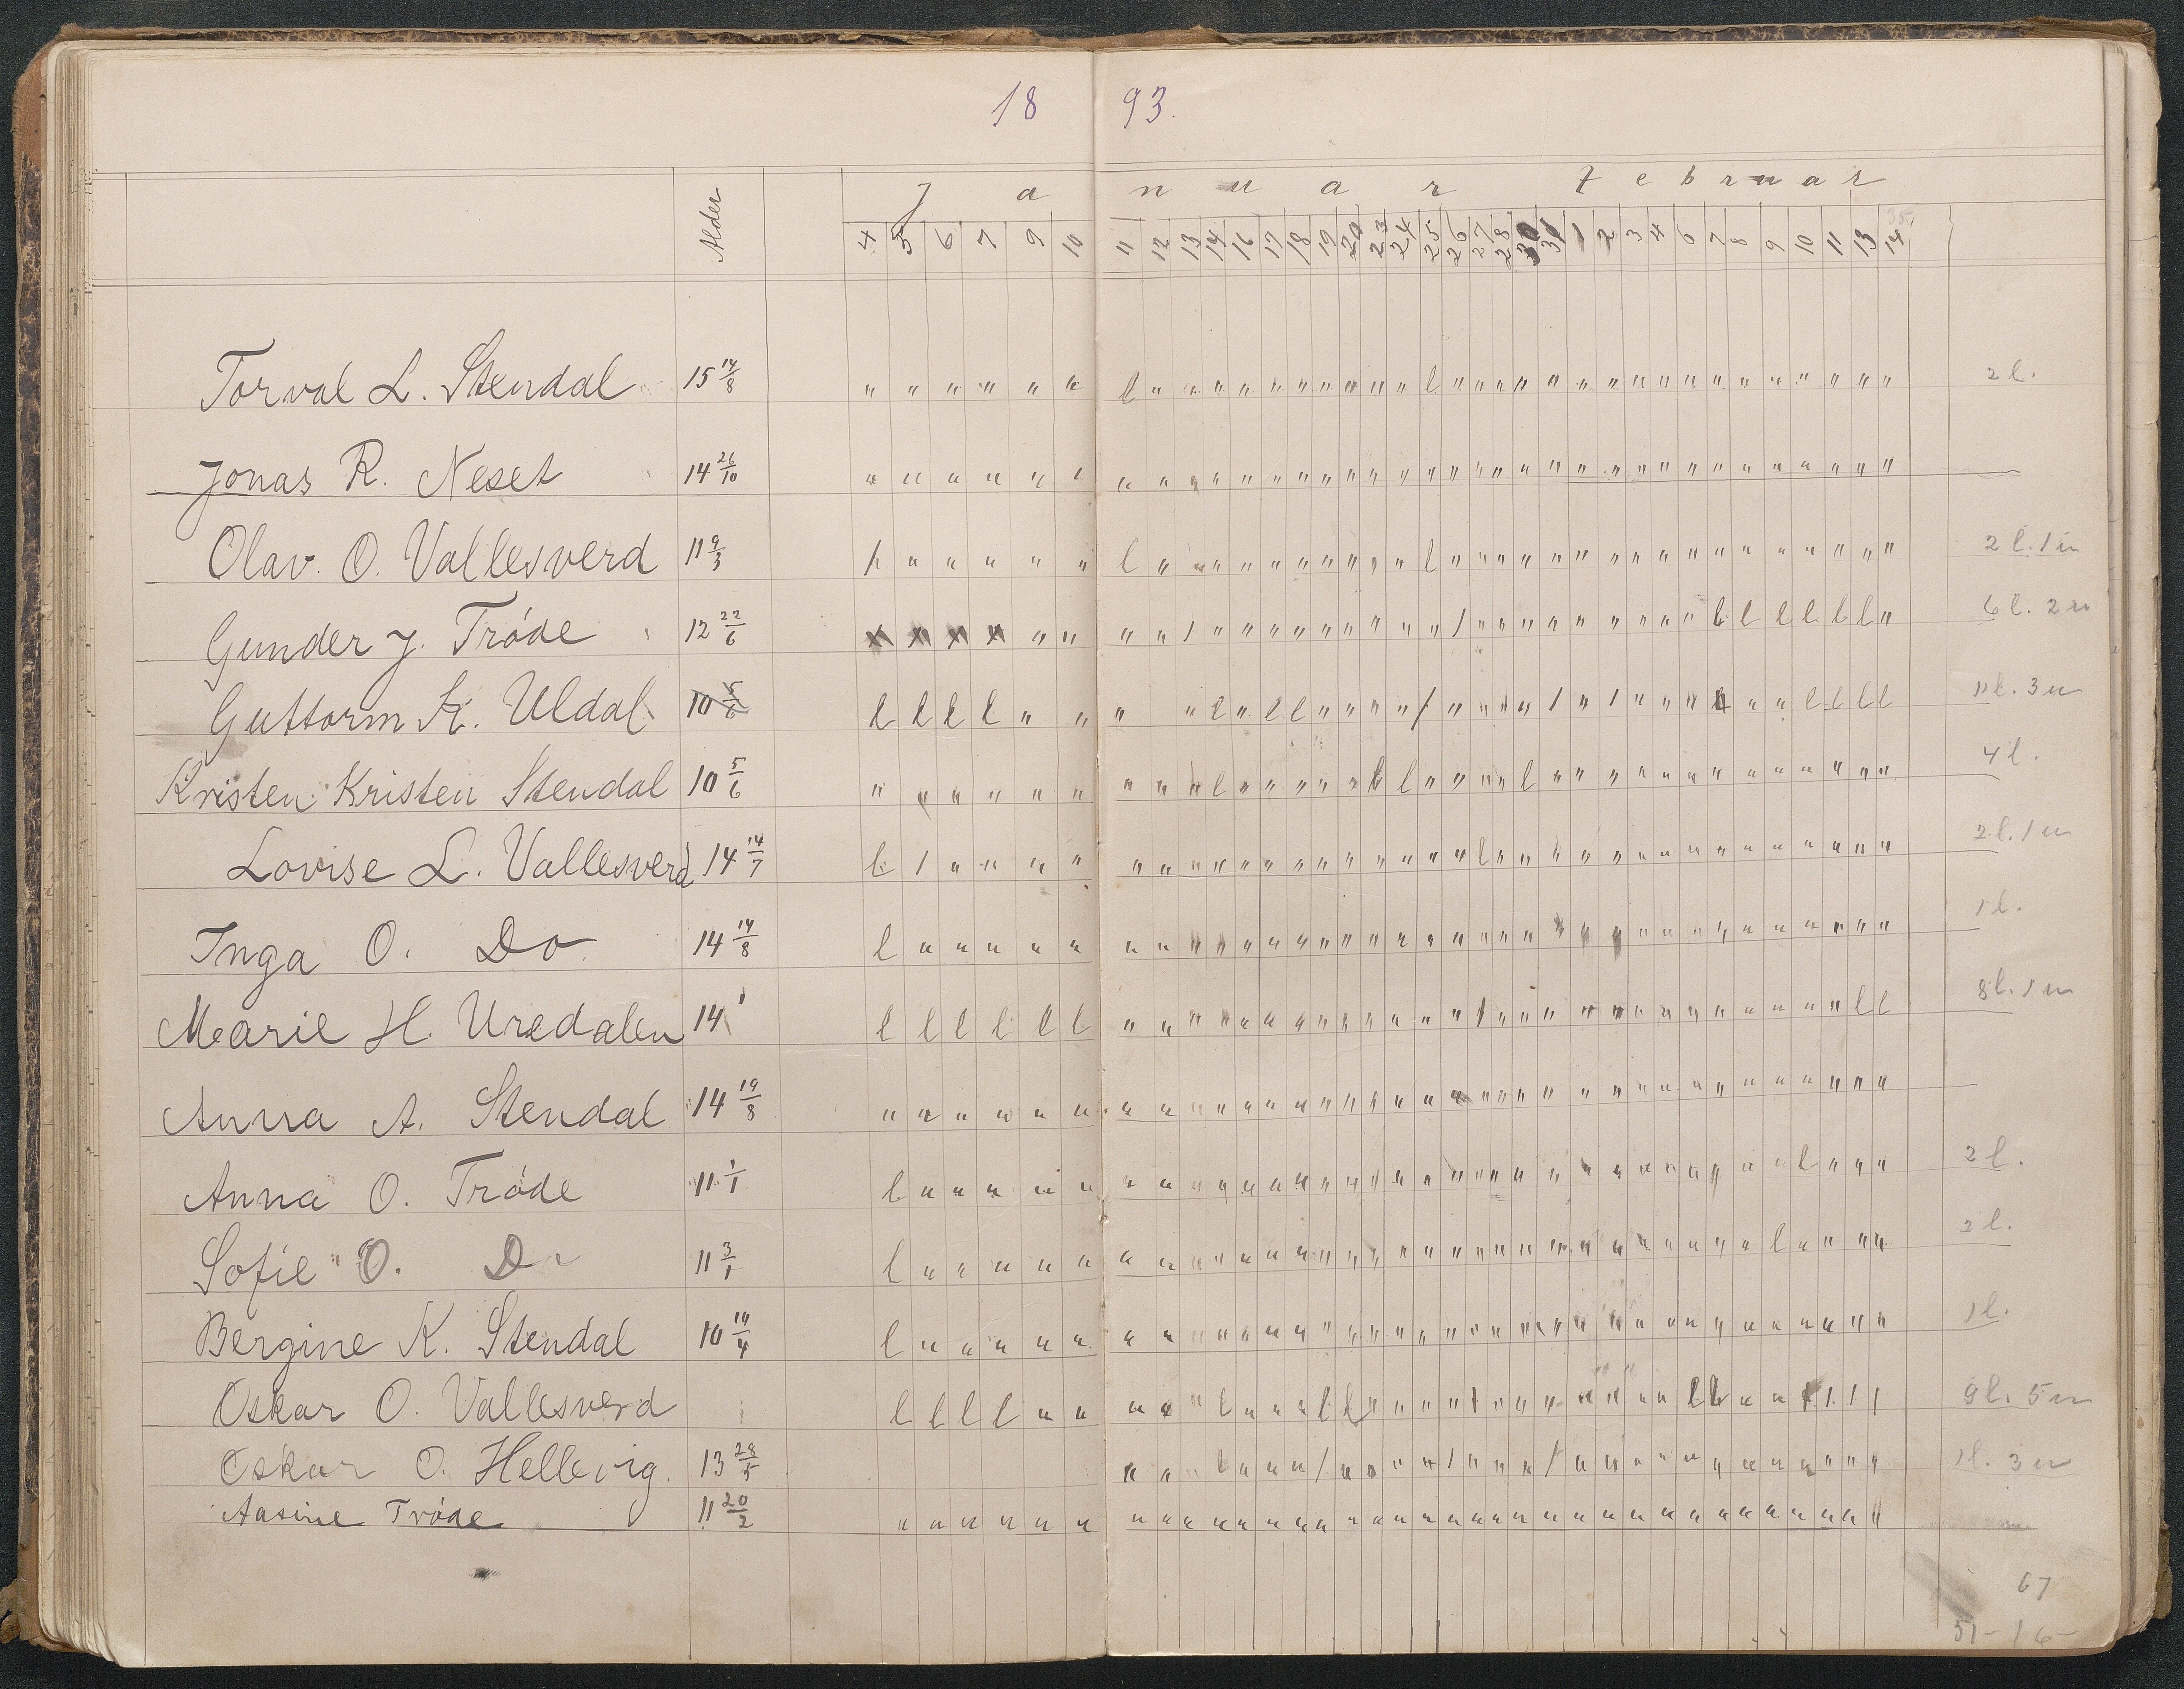 18 93.
Alder
Januar Februar
4 5 6 7 9 10 11 12 13 14 16 17 18 19 20 23 24 25 26 27 28 30 31 1 2 3 4 6 7 8 9 10 11 13 14
Torval L. Stendal 15 14/8 2 l.
Jonas R. Neset 14 26/10 —
Olav. O. Vallesverd 11 9/3 2 l. 1 u
Gunder J. Tróde 12 22/6 6 l. 2 u
Guttorm K. Uldal 10 5/6 11 l. 3 u
Kristen Kristen Stendal 10 5/6 4 l.
Lovise L. Vallesverd 14 14/7 2 l. 1 u
Inga O. Do 14 14/8 1 l.
Marie H. Uredalen 14 8 l. 1 u
Anna A. Stendal 14 19/8 —
Anna O. Tróde 11 1/1 2 l.
Sofie O. Do 11 3/1 2 l.
Bergine K. Stendal 10 1 l.
Oskar O. Vallesverd 9 l. 5 u
Oskar O. Hellevig. 13 28/5 1 l. 3 u
Aasine Tróde 11 20/2
67
51 - 16 -